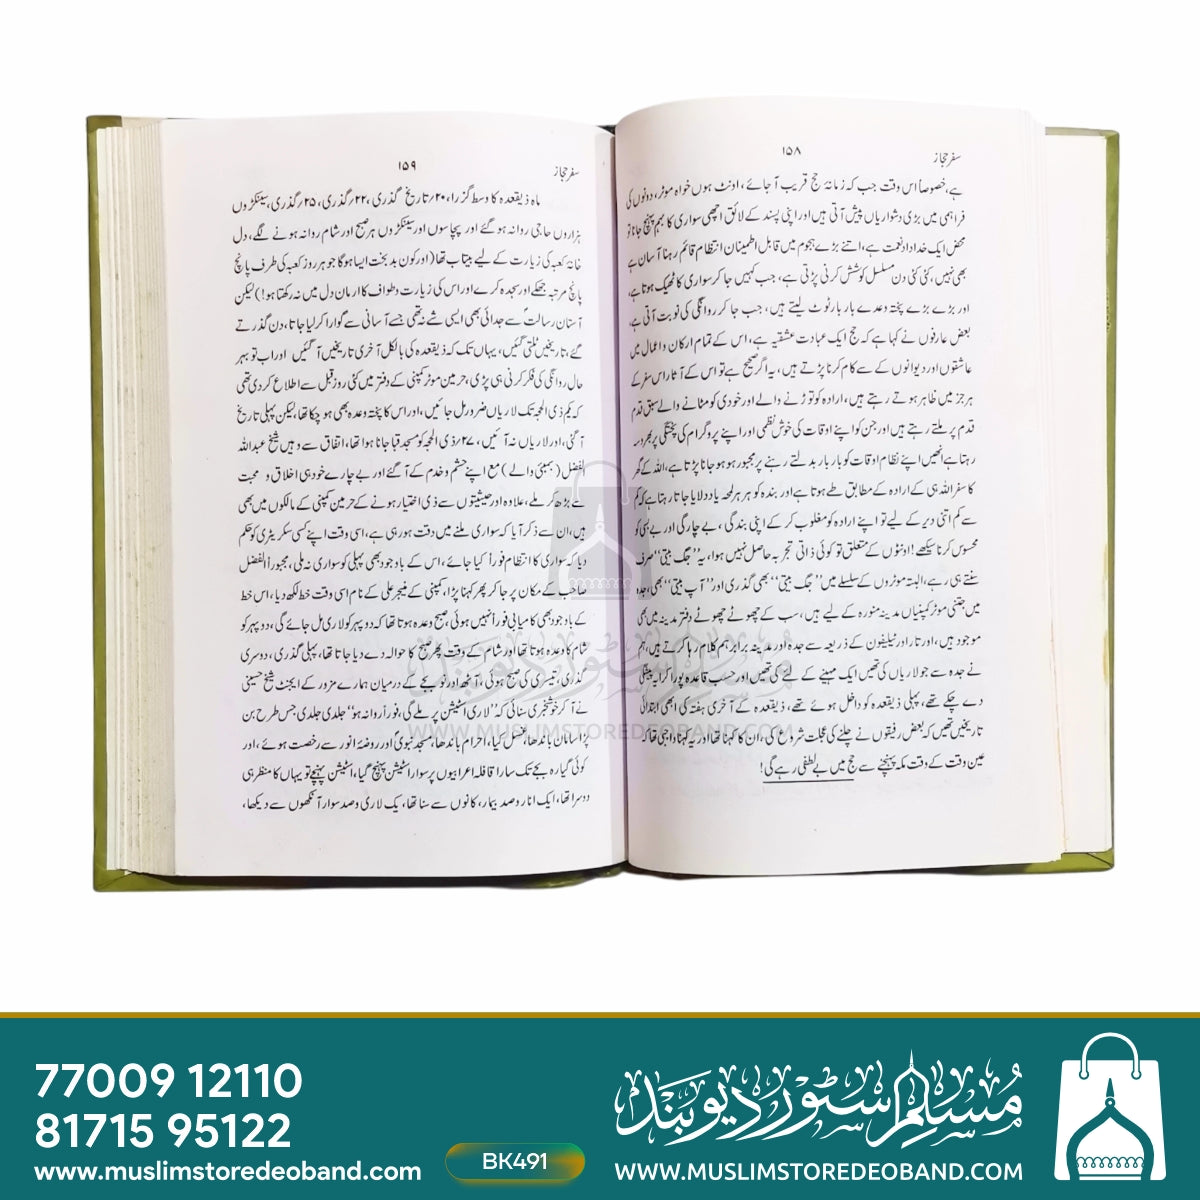 سفر حجاز
۱۵۸
ہے خصوصاً اس وقت جب کہ زمانۂ حج قریب آ جائے، اونٹ ہوں خواہ موٹر، دونوں کی
فراہمی میں بڑی دشواریاں پیش آتی ہیں اور اپنی پسند کے لائق اچھی سواری کا بہم پہنچ جانا تو
محض ایک خداداد نعمت ہے، اتنے بڑے ہجوم میں قابل اطمینان انتظام قائم رہنا آسان ہے
بھی نہیں، کئی کئی دن مسلسل کوشش کرنی پڑتی ہے، جب کہیں جا کر سواری کا ٹھیک ہوتا ہے،
اور بڑے بڑے پختہ وعدے بار بار ٹوٹ لیتے ہیں، جب جا کر روانگی کی نوبت آتی ہے،
بعض عارفوں نے کہا ہے کہ حج ایک عبادت عشقیہ ہے، اس کے تمام ارکان و اعمال میں
عاشقوں اور دیوانوں کے سے کام کرنا پڑتے ہیں، یہ اگر صحیح ہے تو اس کے آثار اس سفر کے
ہر جز میں ظاہر ہوتے رہتے ہیں، ارادہ کو توڑنے والے اور خودی کو مٹانے والے سبق قدم
قدم پر ملتے رہتے ہیں اور جن کو اپنے اوقات کی خوش نظمی اور اپنے پروگرام کی پختگی پر بھروسہ
رہتا ہے انھیں اپنے نظام اوقات کو بار بار بدلتے رہنے پر مجبور ہو ہو جانا پڑتا ہے، اللہ کے گھر
کا سفر اللہ ہی کے ارادہ کے مطابق طے ہوتا ہے اور بندہ کو ہر ہر لمحہ یاد دلایا جاتا رہتا ہے کہ کم
سے کم اتنی دیر کے لیے تو اپنے ارادہ کو مغلوب کر کے اپنی بندگی، بے چارگی اور بے بسی کو
محسوس کرنا سیکھے! اونٹوں کے متعلق تو کوئی ذاتی تجربہ حاصل نہیں ہوا، یہ "جگ بیتی" صرف
سنتے ہی رہے، البتہ موٹروں کے سلسلے میں "جگ بیتی" بھی گذری اور "آپ بیتی" بھی، جدہ
میں جتنی موٹر کمپنیاں مدینہ منورہ کے لیے ہیں، سب کے چھوٹے چھوٹے دفتر مدینہ میں بھی
موجود ہیں، اور تار اور ٹیلیفون کے ذریعہ سے جدہ اور مدینہ برابر ہم کلام رہا کرتے ہیں، ہم
نے جدہ سے جو لاریاں کی تھیں ایک مہینے کے لئے کی تھیں اور حسب قاعدہ پورا کرایہ پیشگی
دے چکے تھے، پہلی ذیقعدہ کو داخل ہوئے تھے، ذیقعدہ کے آخری ہفتہ کی ابھی ابتدائی
تاریخیں تھیں کہ بعض رفیقوں نے چلنے کی عجلت شروع کی، ان کا کہنا تھا اور یہ کہنا واجبی تھا کہ
عین وقت کے وقت مکہ پہنچنے سے حج میں بے لطفی رہے گی!
سفر حجاز
۱۵۹
ماہ ذیقعدہ کا وسط گزرا، ۲۰؍تاریخ گذری، ۲۲؍گذری، ۲۵؍گذری، سینکڑوں
ہزاروں حاجی روانہ ہو گئے اور پچاسوں اور سینکڑوں ہر صبح اور شام روانہ ہونے لگے، دل
خانہ کعبہ کی زیارت کے لیے بیتاب تھا (اور کون بدبخت ایسا ہوگا جو ہر روز کعبہ کی طرف پانچ
پانچ مرتبہ جھکے اور سجدہ کرے اور اس کی زیارت و طواف کا ارمان دل میں نہ رکھتا ہو!) لیکن
آستان رسالتؐ سے جدائی بھی ایسی شے نہ تھی جسے آسانی سے گوارا کر لیا جاتا، دن گذرتے
گئے، تاریخیں ٹلتی گئیں، یہاں تک کہ ذیقعدہ کی بالکل آخری تاریخیں آ گئیں اور اب تو بہر
حال روانگی کی فکر کرنی ہی پڑی، حرمین موٹر کمپنی کے دفتر میں کئی روز قبل سے اطلاع کر دی تھی
کہ یکم ذی الحجہ تک لاریاں ضرور مل جائیں، اور اس کا پختہ وعدہ بھی ہو چکا تھا، لیکن پہلی تاریخ
آ گئی، اور لاریاں نہ آئیں، ۲۷؍ذی الحجہ کو مسجد قبا جانا ہوا تھا، اتفاق سے وہیں شیخ عبداللہ
الفضل (بمبئی والے) مع اپنے حشم و خدم کے آ گئے اور بے چارے خود ہی اخلاق و محبت
سے بڑھ کر ملے، علاوہ اور حیثیتوں سے ذی اختیار ہونے کے حرمین کمپنی کے مالکوں میں بھی
ہیں، ان سے ذکر آیا کہ سواری ملنے میں دقت ہو رہی ہے، اسی وقت اپنے کسی سکریٹری کو حکم
دیا کہ سواری کا انتظام فوراً کیا جائے، اس کے باوجود بھی پہلی کو سواری نہ ملی، مجبوراً الفضل
صاحب کے مکان پر جا کر پھر کہنا پڑا، کمپنی کے منیجر علی کے نام اسی وقت خط لکھ دیا، اس خط
کے باوجود بھی کامیابی فوراً نہیں ہوئی، صبح وعدہ ہوتا تھا کہ دوپہر کو لاری مل جائے گی، دوپہر کو
شام کا وعدہ ہوتا تھا اور شام کے وقت پھر صبح کا حوالہ دے دیا جاتا تھا، پہلی گذری، دوسری
گذری، تیسری کی صبح ہوئی، آٹھ اور نو بجے کے درمیان ہمارے مزور کے ایجنٹ شیخ حسینی
نے آ کر خوشخبری سنائی کہ "لاری اسٹیشن پر ملے گی، فوراً روانہ ہو" جلدی جلدی جس طرح بن
پڑا سامان باندھا، غسل کیا، احرام باندھا، مسجد نبویؐ اور روضۂ انور سے رخصت ہوئے، اور
کوئی گیارہ بجے تک سارا قافلہ اعرابیوں پر سوار اسٹیشن پہنچ گیا، اسٹیشن پہنچے تو یہاں کا منظر ہی
دوسرا تھا، ایک انار و صد بیمار، کانوں سے سنا تھا، یک لاری و صد سوار آنکھوں سے دیکھا،
مسلم سٹور دیوبند
WWW.MUSLIMSTOREDEOBAND.COM
77009 12110
81715 95122
www.muslimstoredeoband.com
BK491
مسلم سٹور دیوبند
WWW.MUSLIMSTOREDEOBAND.COM